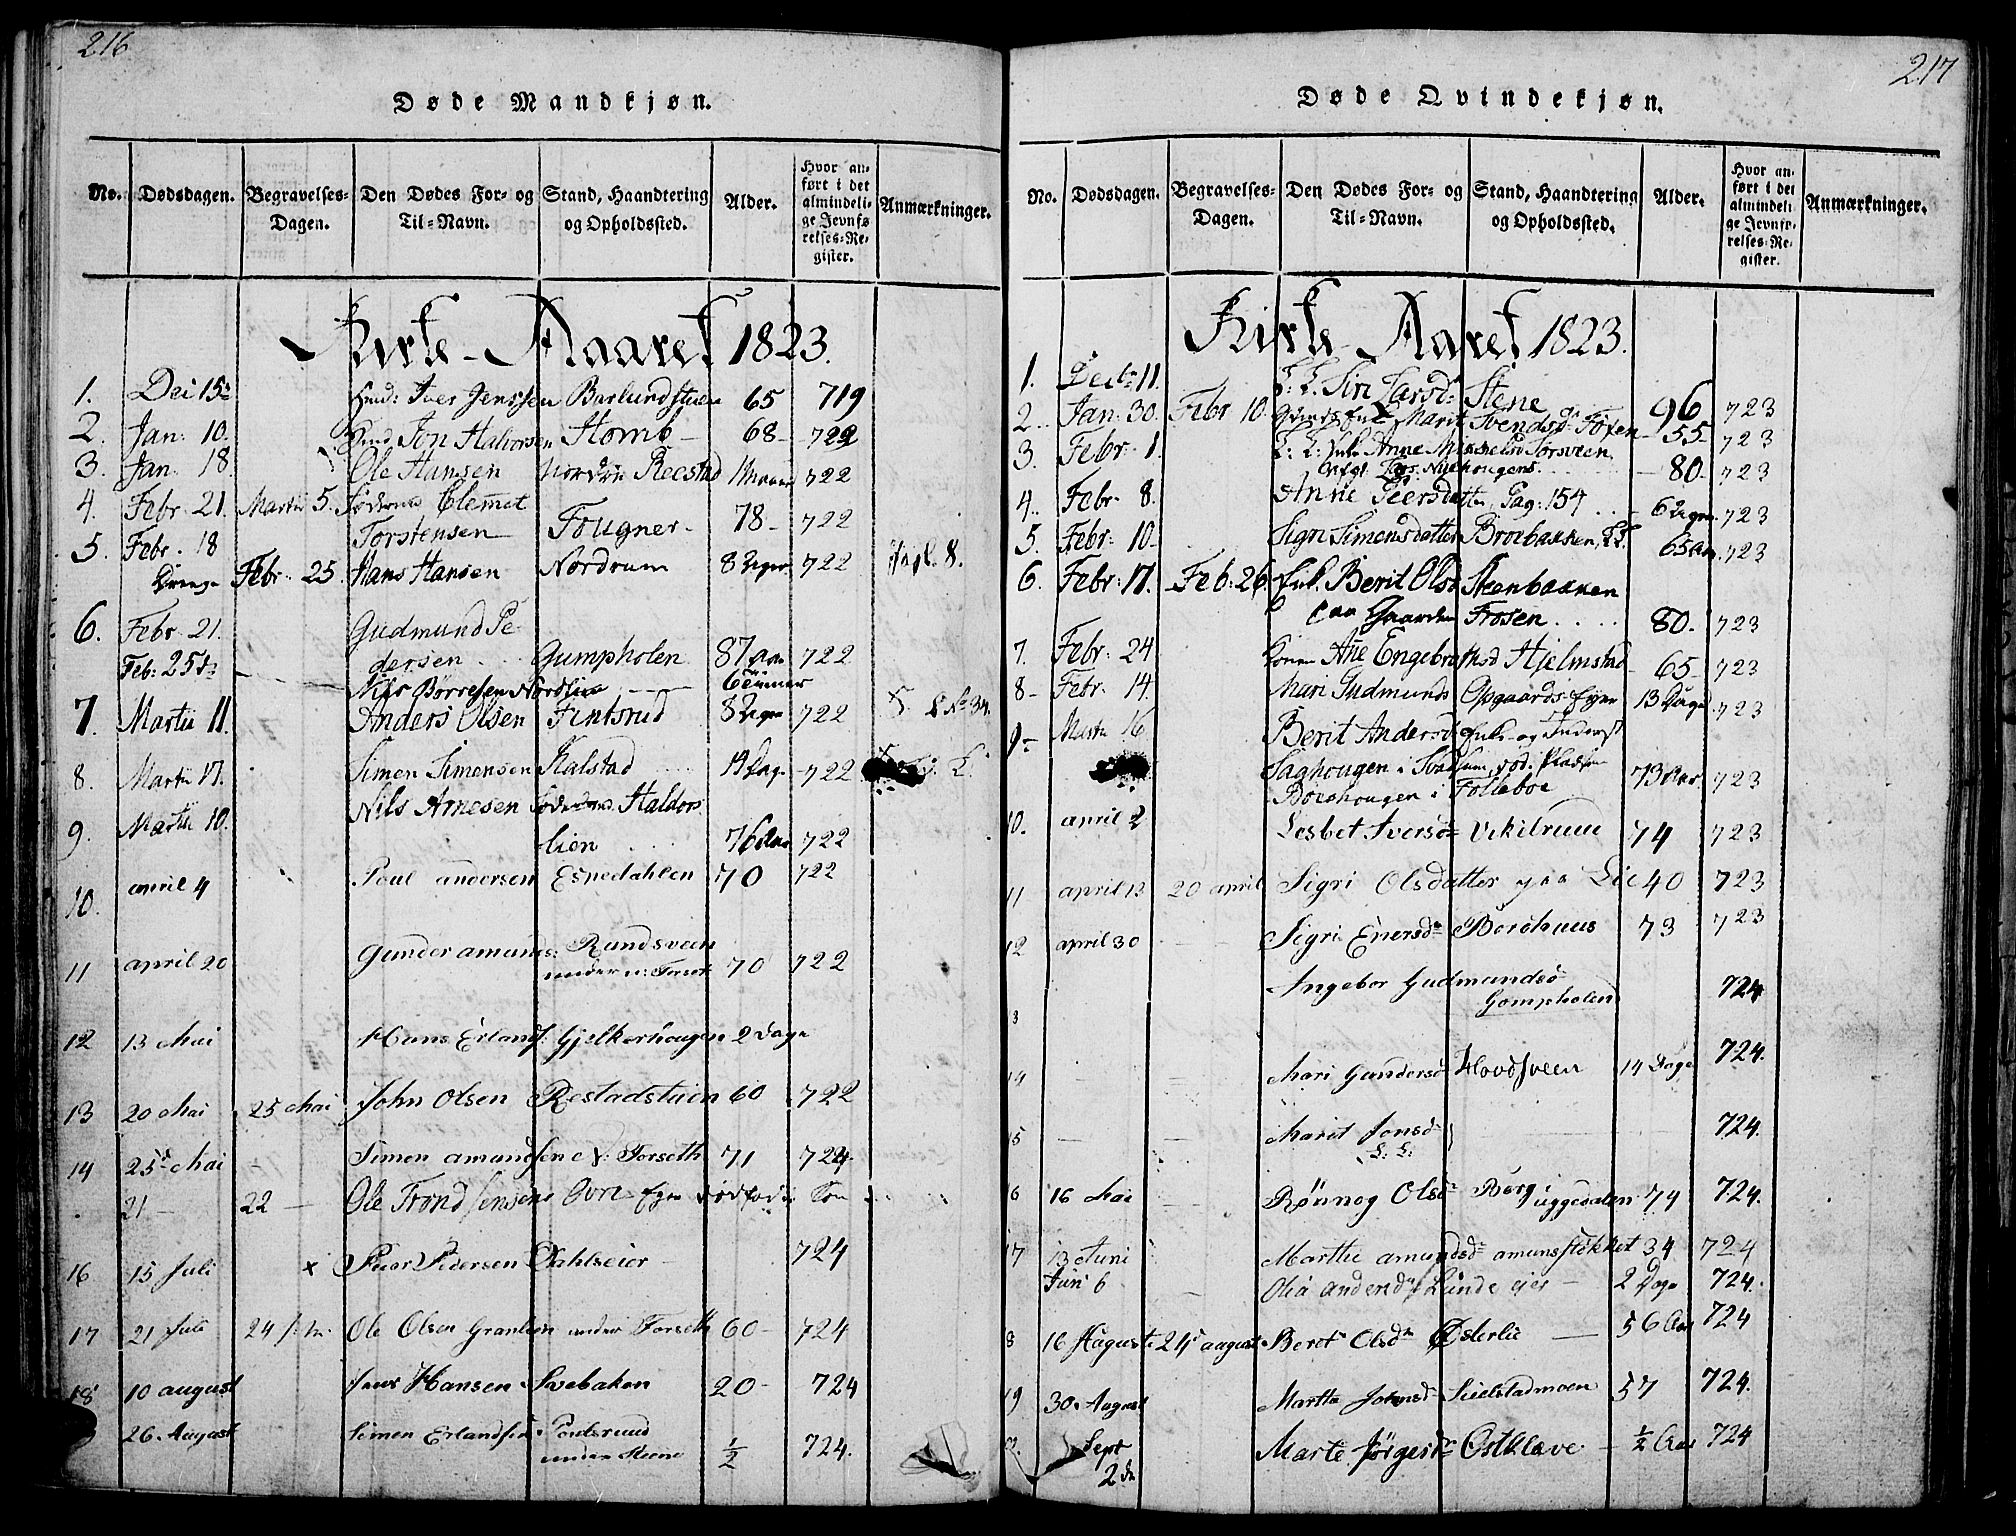 216
Døde Mandkjøn.
No. Dødsdagen. Begravelses-Dagen. Den Dødes For- og Til-Navn. Stand, Haandtering og Opholdssted. Alder. Hvor anført i det almindelige Jevnførelses-Register. Anmærkninger.
Kirke-Aaret 1823.
1. Dec 15 Iver Jenssen Barlundstuen 65 719
2. Jan: 10. Jon Halvorsen Homb 68 722
3. Jan: 18 Ole Hansen nordre Reestad 722
4. Febr. 21. Martii 5. Clemmet
Torstensen Fougner 78 722
5. Febr. 18
Febr. 25 Hans Hansen Nordrum 8 722
6. Febr. 21. Gudmund Pe-
dersen Gumpholen 87 722
Feb: 25 Nils Børresen Nordlien
7. Martii 11. Anders Olsen Fintsrud 8 722
8. Martii 17. Simen Simensen Kalstad 722
9. Martii 10. Nils Arnesen Haldors
lien 76 722
10. april 4 Poul andersen Espedahlen 70 722
11 april 20 Gunder amuns: Rundsveen
under 70 722
12 13 Mai Hans Erlands: Gjelkerhougen 2 Dage
13 20 Mai 25 Mai John Olsen Restadstuen 60 722
14 25 Mai Simen amundsen Forseth 71 724
21 22 Ole Trondsens
16 15 Juli x Peder Pedersen Dahlseier 724
17 21 Juli 24 Ole Olsen Granlien under Forseth 60 724
18 10 august Hansen Svebaken 20 724
26. August Simen Erlandsen Poulsrud
under Steene ½ 724.
217
Døde Qvindekjøn.
No. Dødsdagen. Begravelses-Dagen. Den Dødes For- og Til-Navn. Stand, Haandtering og Opholdssted. Alder. Hvor anført i det almindelige Jevnførelses-Register. Anmærkninger.
Kirke-Aaret 1823.
1. Dec 11. Siri Larsd: Stene 96 723
2. Jan: 30. Febr 10. Marit Svendsd: 55 723
3. Febr. 1. Anne Torsveen
80. 723
4. Febr. 8. Anne Peersdatter, Pag: 154 723
5. Febr: 10 Sigri Simensdatter Broebakken 65 723
6. Febr: 17. Feb: 26. Berit Olsd Steenbakken
paa Gaarden Frosen 80. 723
7. Febr: 24 Engebrethsd Hjelmstad 65 723
8 Febr. 14. Mari Gudmunds Opgaards 13 Dage 723
9 Martii 16 Berit Andersd og Inderst
Saghougen i
i Folleboe 73 Aar. 723
10. april 2 Lisbet Iversd Vekilrud 74 723
11 april 13 20 april Sigri Olsdatter Lie 40 723
12 april 30 Sigri Enersd Borohuus 73 723
3 Ingebor Gudmundsd
Gompholen 724
14 Mari Gundersd Hovdsveen 14 Dage 724.
15 Marit Jonsd 724.
6 16 Mai Rønnog Olsd Berg i uggedalen 74 724.
17 13 Juni Marthe amundsd amunsstøkket 34 724
Juni 6 andersd Lunde 2 Dage 724.
8 16 August 24 august Beret Olsd Østerlie 56 Aar 724
19 30. August Marthe Johnsd Sielstadmoen 57 724.
Sept
2 Marte Jørgesd Ostklæve ½ Aar 724